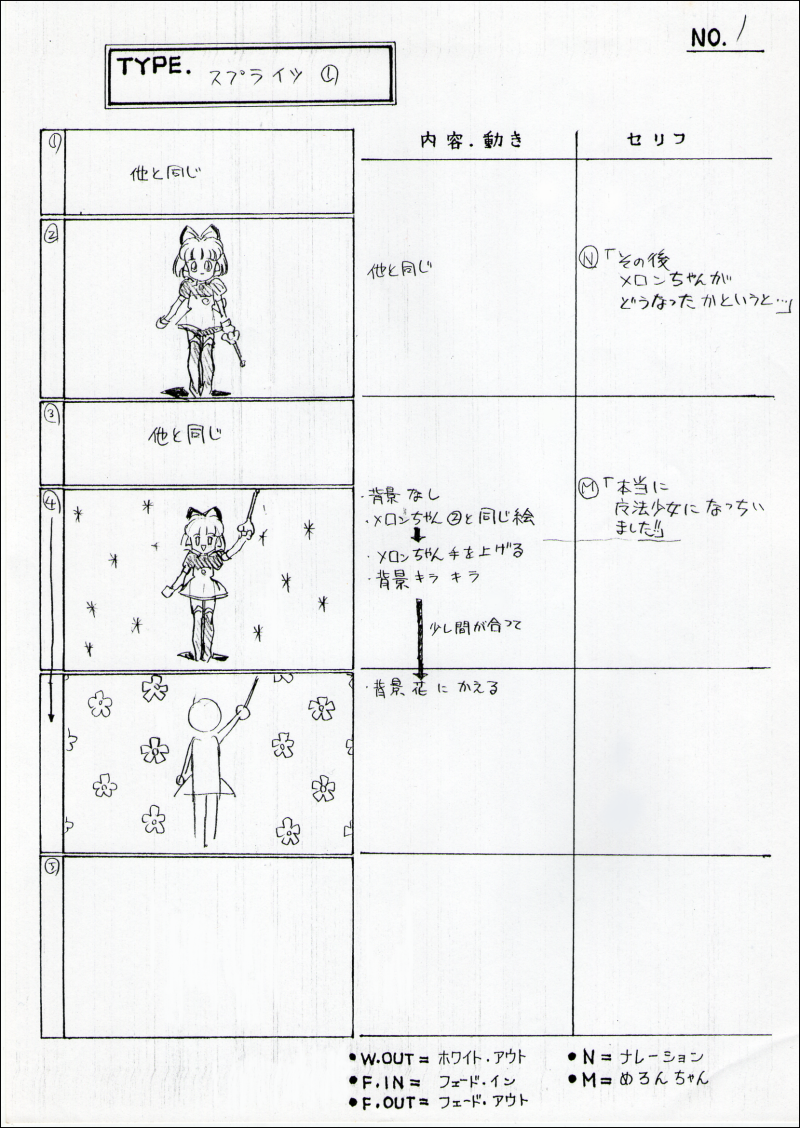 NO. 1
TYPE. スプライツ ①
内容.動き
セリフ
①
他と同じ
②
他と同じ
Ⓝ「その後
メロンちゃんが
どうなったかというと…」
③
他と同じ
④
・背景なし
・メロンちゃん②と同じ絵
・メロンちゃん手を上げる
・背景キラキラ
少し間が合って
・背景花にかえる
Ⓜ「本当に
魔法少女になっちゃい
ました!!」
⑤
●W.OUT= ホワイト・アウト
●F.IN= フェード・イン
●F.OUT= フェード・アウト
●N= ナレーション
●M= めろんちゃん